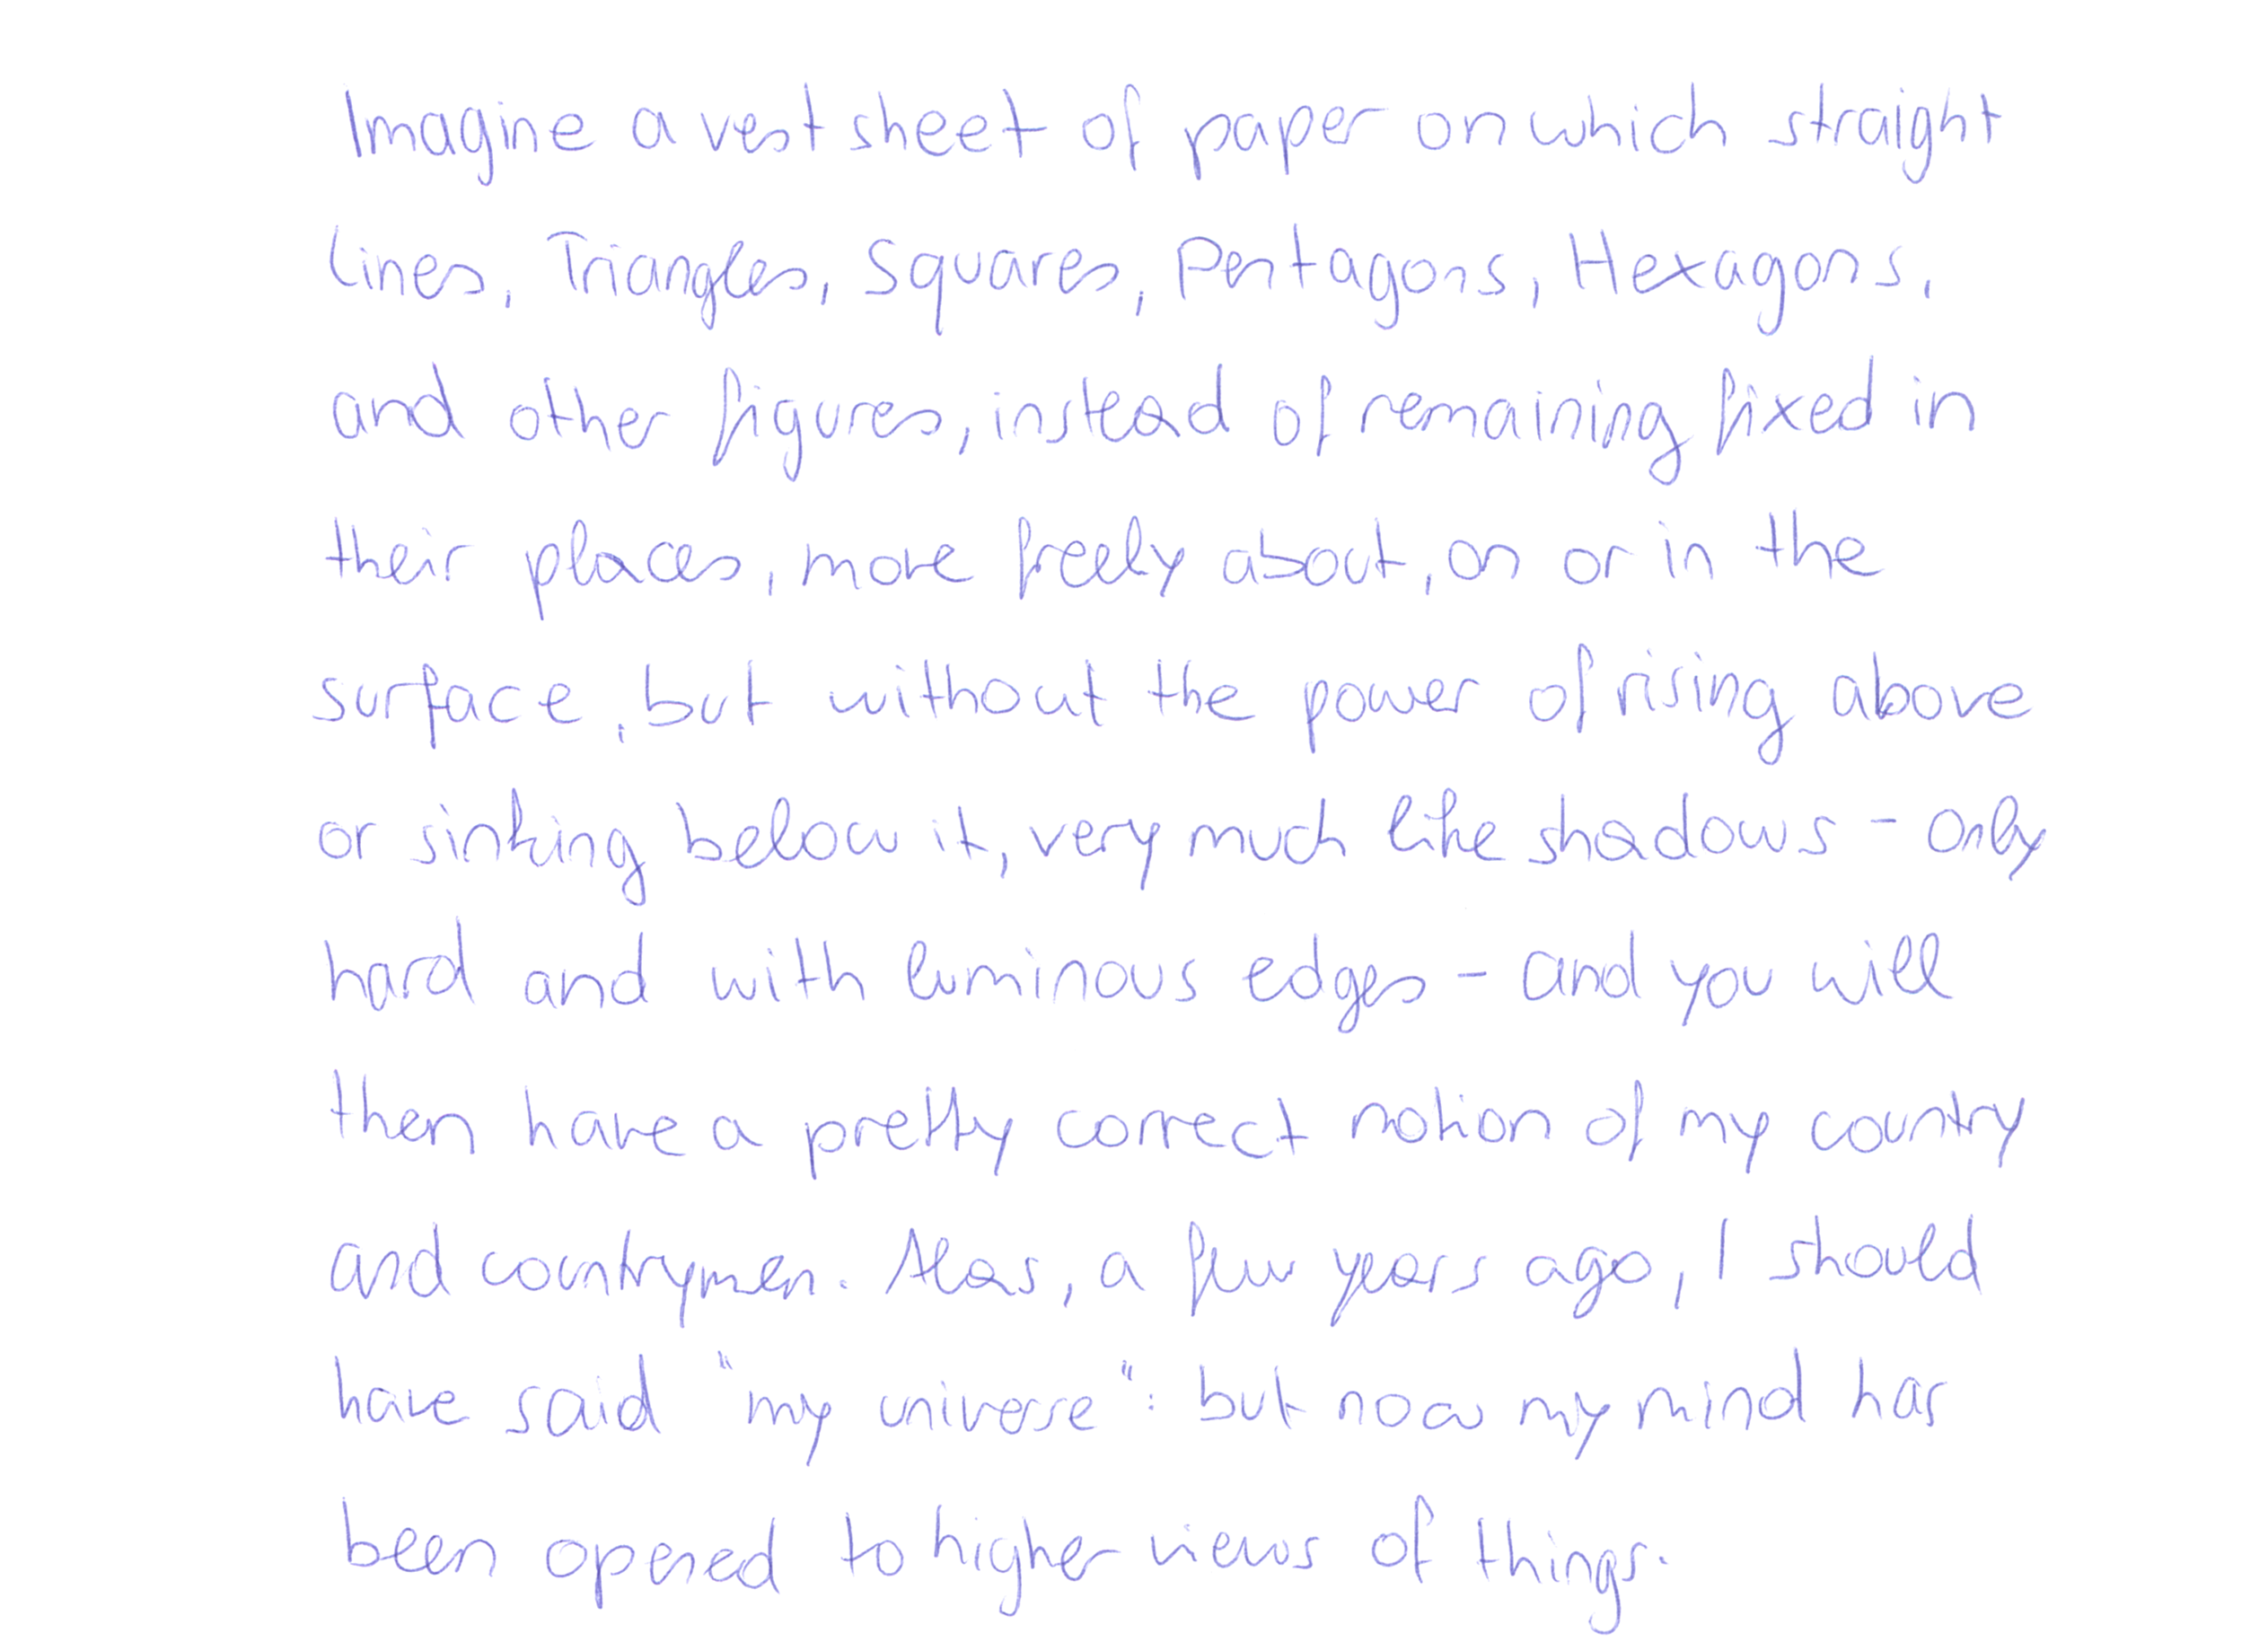 Imagine a vest sheet of paper on which straight
lines, Triangles, Squares, Pentagons, Hexagons,
and other figures, instead of remaining fixed in
their places, more freely about, on or in the
surface, but without the power of rising above
or sinking below it, very much like shadows - only
hard and with luminous edges - and you will
then have a pretty correct notion of my country
and countrymen. Alas, a few years ago, I should
have said "my universe": but now my mind has
been opened to higher views of things.